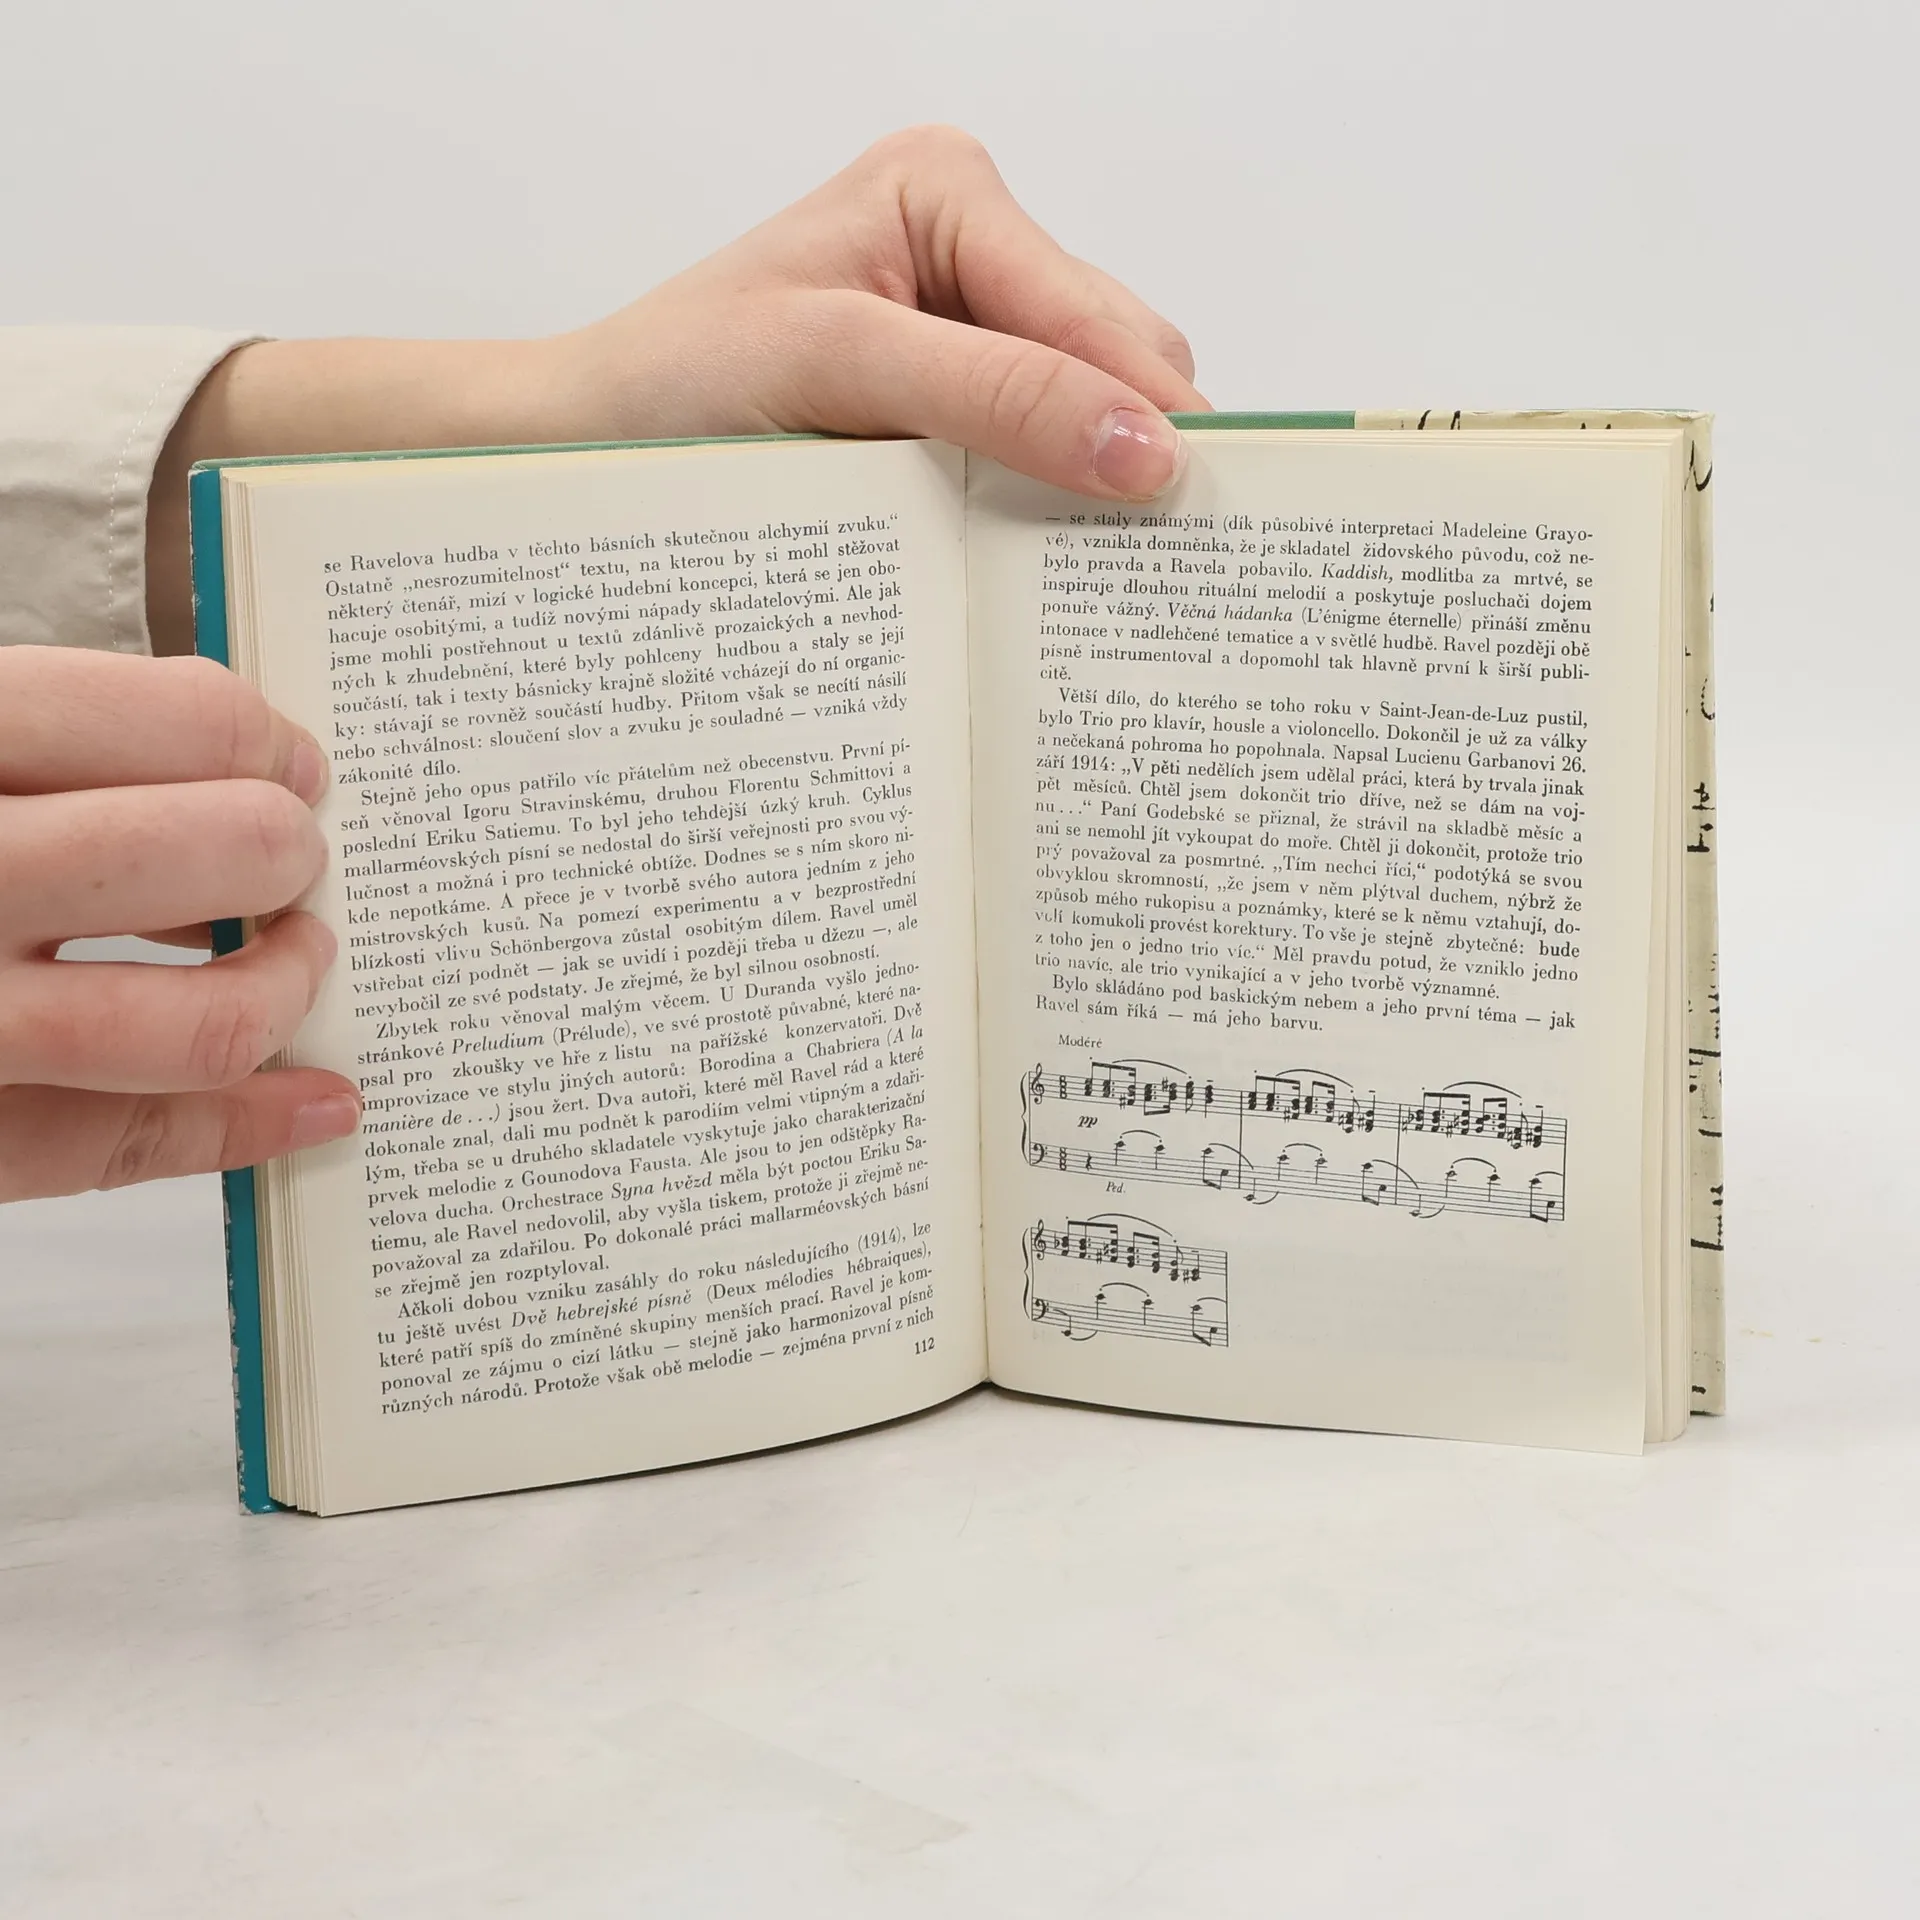 se Ravelova hudba v těchto básních skutečnou alchymií zvuku.“
Ostatně „nesrozumitelnost“ textu, na kterou by si mohl stěžovat
některý čtenář, mizí v logické hudební koncepci, která se jen obo-
hacuje osobitými, a tudíž novými nápady skladatelovými. Ale jak
jsme mohli postřehnout u textů zdánlivě prozaických a nevhod-
ných k zhudebnění, které byly pohlceny hudbou a staly se její
součástí, tak i texty básnicky krajně složité vcházejí do ní organic-
ky: stávají se rovněž součástí hudby. Přitom však se necítí násilí
nebo schválnost: sloučení slov a zvuku je souladné — vzniká vždy
zákonité dílo.
Stejně jeho opus patřilo víc přátelům než obecenstvu. První pí-
seň věnoval Igoru Stravinskému, druhou Florentu Schmittovi a
poslední Eriku Satiemu. To byl jeho tehdejší úzký kruh. Cyklus
mallarméovských písní se nedostal do širší veřejnosti pro svou vý-
lučnost a možná i pro technické obtíže. Dodnes se s ním skoro ni-
kde nepotkáme. A přece je v tvorbě svého autora jedním z jeho
mistrovských kusů. Na pomezí experimentu a v bezprostřední
blízkosti vlivu Schönbergova zůstal osobitým dílem. Ravel uměl
vstřebat cizí podnět — jak se uvidí i později třeba u džezu —, ale
nevybočil ze své podstaty. Je zřejmé, že byl silnou osobností.
Zbytek roku věnoval malým věcem. U Duranda vyšlo jedno-
stránkové Preludium (Prélude), ve své prostotě půvabné, které na-
psal pro zkoušky ve hře z listu na pařížské konzervatoři. Dvě
improvizace ve stylu jiných autorů: Borodina a Chabriera (A la
manière de ...) jsou žert. Dva autoři, které měl Ravel rád a které
dokonale znal, dali mu podnět k parodiím velmi vtipným a zdaři-
lým, třeba se u druhého skladatele vyskytuje jako charakterizační
prvek melodie z Gounodova Fausta. Ale jsou to jen odštěpky Ra-
velova ducha. Orchestrace Syna hvězd měla být poctou Eriku Sa-
tiemu, ale Ravel nedovolil, aby vyšla tiskem, protože ji zřejmě ne-
považoval za zdařilou. Po dokonalé práci mallarméovských básní
se zřejmě jen rozptyloval.
Ačkoli dobou vzniku zasáhly do roku následujícího (1914), lze
tu ještě uvést Dvě hebrejské písně (Deux mélodies hébraiques),
které patří spíš do zmíněné skupiny menších prací. Ravel je kom-
ponoval ze zájmu o cizí látku — stejně jako harmonizoval písně
různých národů. Protože však obě melodie — zejména první z nich
112
— se staly známými (dík působivé interpretaci Madeleine Grayo-
vé), vznikla domněnka, že je skladatel židovského původu, což ne-
bylo pravda a Ravela pobavilo. Kaddish, modlitba za mrtvé, se
inspiruje dlouhou rituální melodií a poskytuje posluchači dojem
ponuře vážný. Věčná hádanka (L’énigme éternelle) přináší změnu
intonace v nadlehčené tematice a v světlé hudbě. Ravel později obě
písně instrumentoval a dopomohl tak hlavně první k širší publi-
citě.
Větší dílo, do kterého se toho roku v Saint-Jean-de-Luz pustil,
bylo Trio pro klavír, housle a violoncello. Dokončil je už za války
a nečekaná pohroma ho popohnala. Napsal Lucienu Garbanovi 26.
září 1914: „V pěti nedělích jsem udělal práci, která by trvala jinak
pět měsíců. Chtěl jsem dokončit trio dříve, než se dám na voj-
nu ...“ Paní Godebské se přiznal, že strávil na skladbě měsíc a
ani se nemohl jít vykoupat do moře. Chtěl ji dokončit, protože trio
prý považoval za posmrtné. „Tím nechci říci,“ podotýká se svou
obvyklou skromností, „že jsem v něm plýtval duchem, nýbrž že
způsob mého rukopisu a poznámky, které se k němu vztahují, do-
volí komukoli provést korektury. To vše je stejně zbytečné: bude
z toho jen o jedno trio víc.“ Měl pravdu potud, že vzniklo jedno
trio navíc, ale trio vynikající a v jeho tvorbě významné.
Bylo skládáno pod baskickým nebem a jeho první téma — jak
Ravel sám říká — má jeho barvu.
Modéré
pp
Ped.